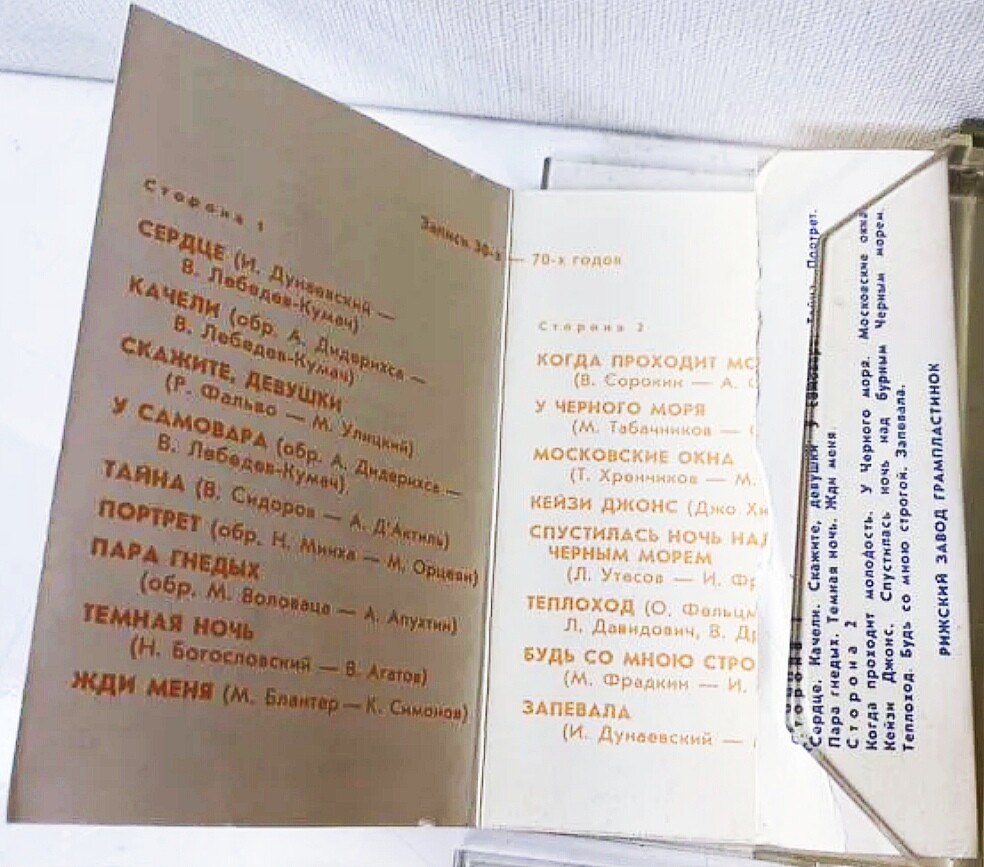 Сторона 1
Записи 30-х — 70-х годов
СЕРДЦЕ (И. Дунаевский —
В. Лебедев-Кумач)
КАЧЕЛИ (обр. А. Дидерихса —
В. Лебедев-Кумач)
СКАЖИТЕ, ДЕВУШКИ
(Р. Фальво — М. Улицкий)
У САМОВАРА (обр. А. Дидерихса —
В. Лебедев-Кумач)
ТАЙНА (В. Сидоров — А. Д'Актиль)
ПОРТРЕТ (обр. Н. Минха — М.
ПАРА ГНЕДЫХ
(обр. М. Воловаца — А. Апухтин)
ТЕМНАЯ НОЧЬ
(Н. Богословский — В. Агатов)
ЖДИ МЕНЯ (М. Блантер — К. Симонов)
Сторона 2
КОГДА ПРОХОДИТ
(В. Сорокин — А.
У ЧЕРНОГО МОРЯ
(М. Табачников —
МОСКОВСКИЕ ОКНА
(Т. Хренников — М.
КЕЙЗИ ДЖОНС (Джо
СПУСТИЛАСЬ НОЧЬ
ЧЕРНЫМ МОРЕМ
(Л. Утесов — И.
ТЕПЛОХОД (О.
Л. Давидович, В.
БУДЬ СО МНОЮ
(М. Фрадкин — И.
ЗАПЕВАЛА
(И. Дунаевский —
Сторона 1
Сердце. Качели. Скажите, девушки. У самовара. Тайна. Портрет.
Пара гнедых. Темная ночь. Жди меня.
Сторона 2
Когда проходит молодость. У Черного моря. Московские окна.
Кейзи Джонс. Спустилась ночь над бурным Черным морем.
Теплоход. Будь со мною строгой. Запевала.
РИЖСКИЙ ЗАВОД ГРАМПЛАСТИНОК